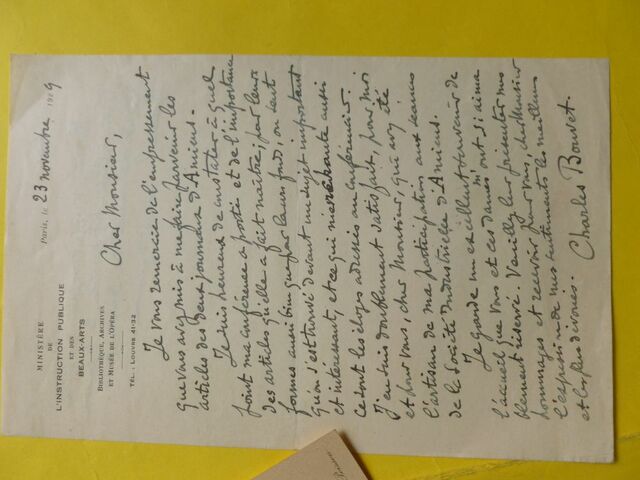 MINISTÈRE
DE
L'INSTRUCTION PUBLIQUE
ET DES
BEAUX-ARTS
BIBLIOTHÈQUE, ARCHIVES
ET MUSÉE DE L'OPÉRA
TÉL. : LOUVRE 41-32
Paris, le 23 novembre 1929
Cher Monsieur,
Je vous remercie de l'empressement
que vous avez mis à me faire parvenir les
articles des deux journaux d'Amiens.
Je suis heureux de constater à quel
point ma conférence a portée et de l'importance
des articles qu'elle a fait naître; par leurs
formes aussi bien que par leurs fond, on sent
qu'on s'est trouvé devant un sujet important
et intéressant, et ce qui me
ce sont les éloges adressés au conférencier.
J'en suis doublement satisfait, pour moi
et pour vous, cher Monsieur, qui avez été
l'artisan de ma participation aux séances
de la Société Industrielle d'Amiens.
Je garde un excellent souvenir de
l'accueil que vous et ces dames m'ont si aima
blement réservé. Veuillez leur présenter mes
hommages et recevoir pour vous, cher Monsieur
l'expression de mes sentiments les meilleurs
et les plus dévoués.
Charles Bouvet.